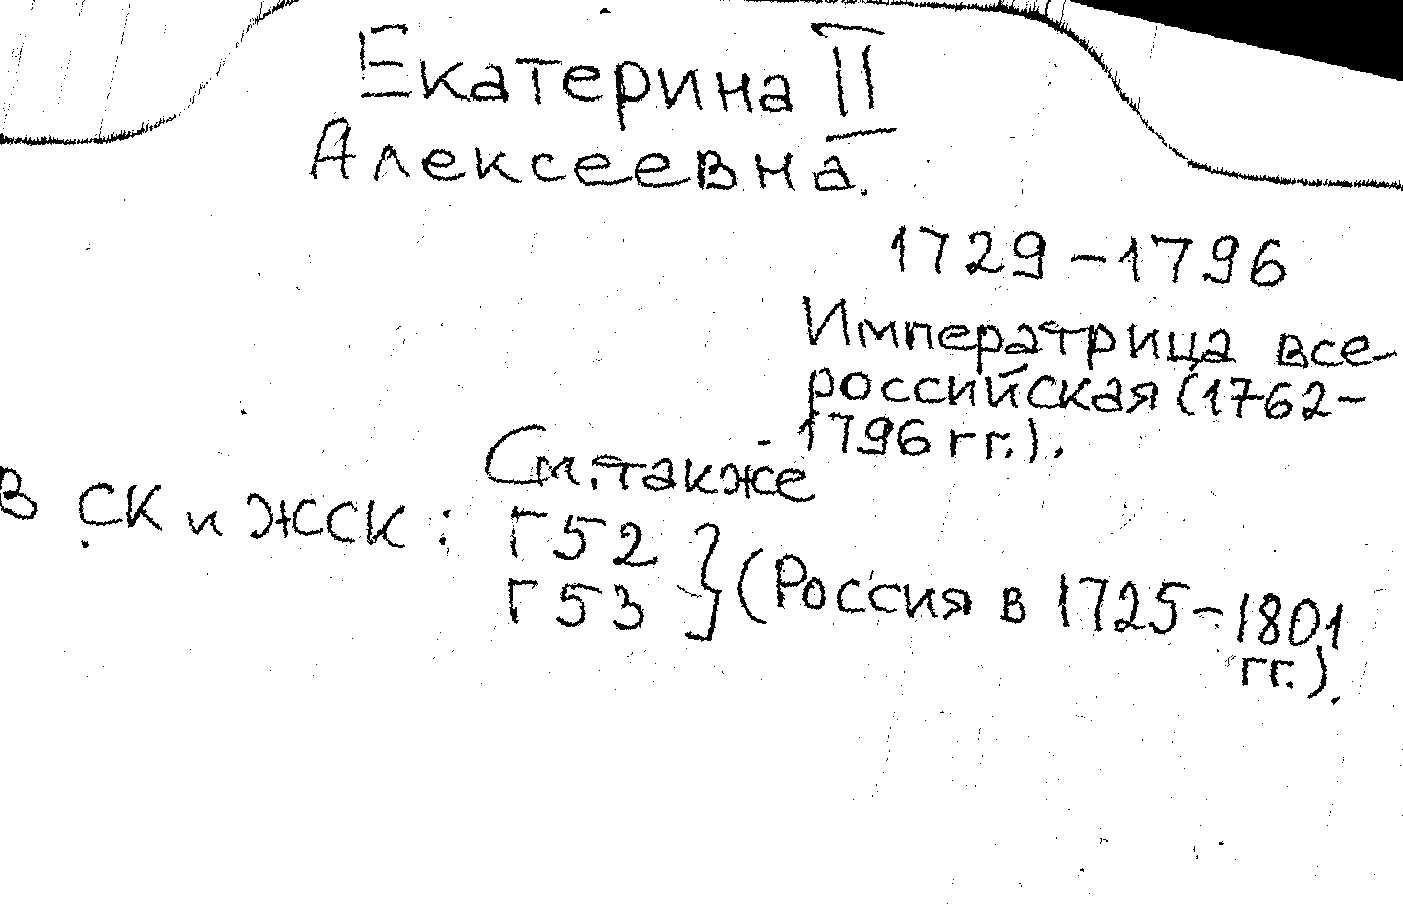 Екатерина II
Алексеевна.
1729-1796
Императрица все-
российская (1762-
1796 гг.).
См. также
В СК и ЖССК:
Г52
Г53
} (Россия в 1725-1801
гг.).